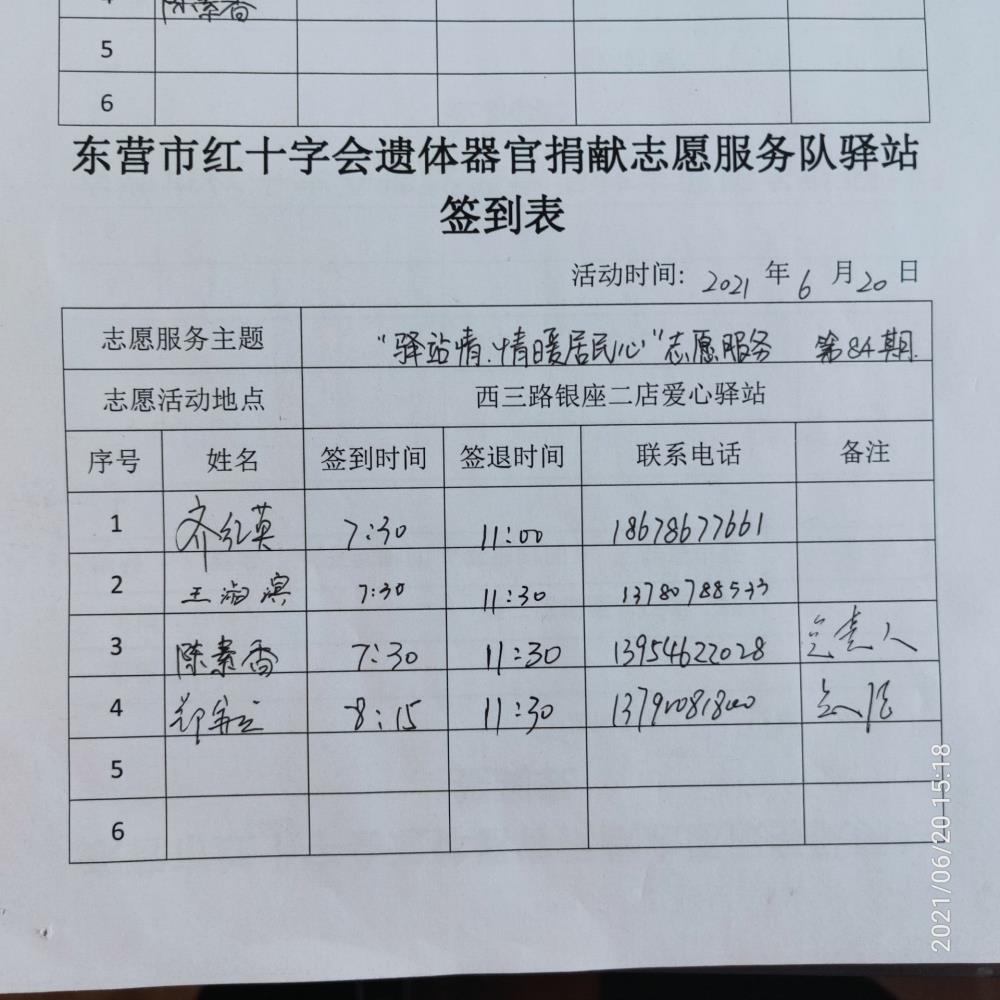 4 陈素香
5
6
东营市红十字会遗体器官捐献志愿服务队驿站
签到表
活动时间: 2021 年 6 月 20 日
志愿服务主题 “驿站情.情暖居民心”志愿服务 第84期.
志愿活动地点 西三路银座二店爱心驿站
序号 姓名 签到时间 签退时间 联系电话 备注
1 齐红英 7:30 11:00 18678677661
2 王 7:30 11:30 13780788533
3 陈素香 7:30 11:30 13954622028 人
4 郑 8:15 11:30
5
6
2021/06/20 15:18